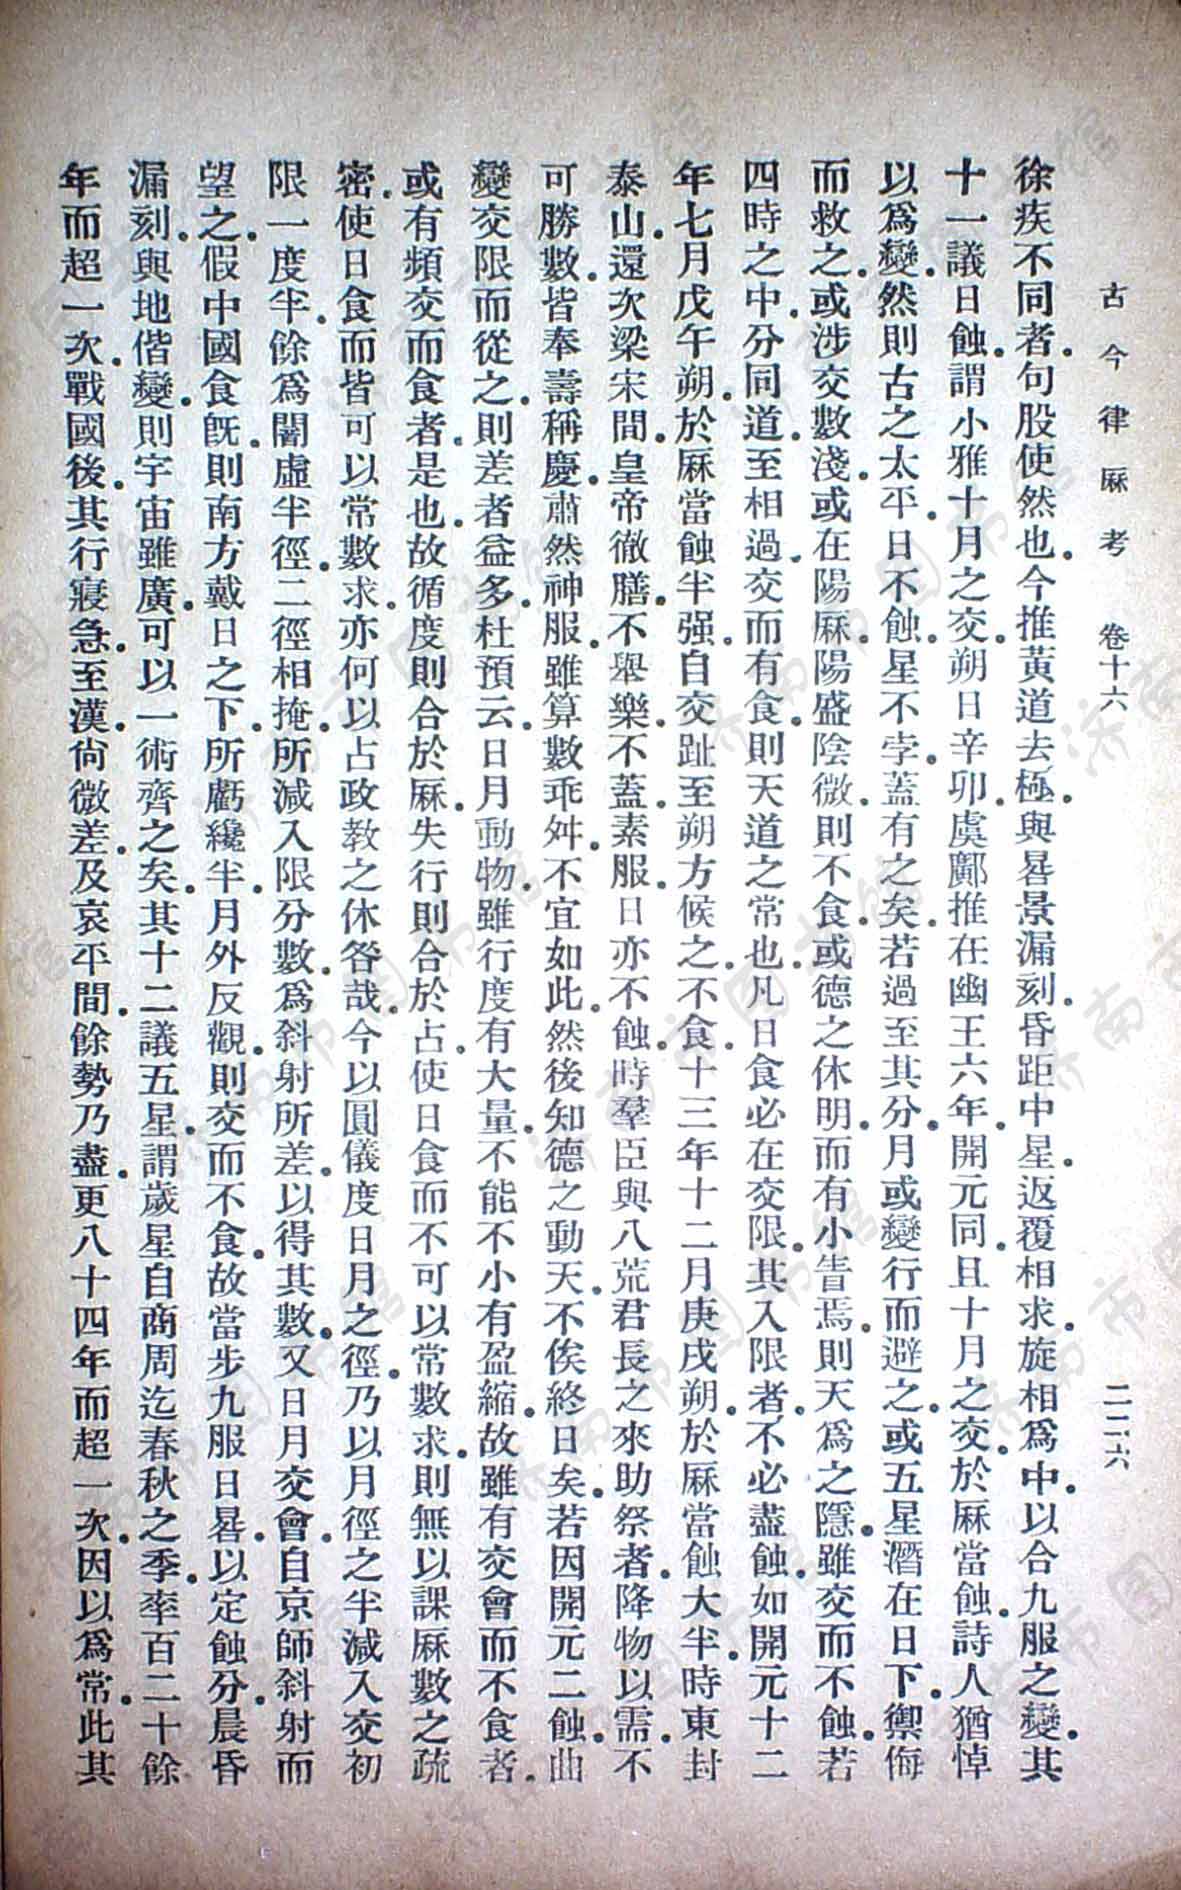 古今律厤考 卷十六 二二六
徐疾不同者。句股使然也。今推黃道去極。與晷景漏刻。昏距中星。返覆相求。旋相爲中。以合九服之變。其
十一議日蝕。謂小雅十月之交。朔日辛卯。虞𠠎推在幽王六年。開元同。且十月之交。於厤當蝕。詩人猶悼
以爲變。然則古之太平。日不蝕。星不孛。蓋有之矣。若過至其分。月或變行而避之。或五星潛在日下。禦侮
而救之。或涉交數淺。或在陽厤。陽盛陰微。則不食。或德之休明。而有小眚焉。則天爲之隱。雖交而不蝕。若
四時之中。分同道。至相過。交而有食。則天道之常也。凡日食必在交限。其入限者。不必盡蝕。如開元十二
年七月戊午朔。於厤當蝕半强。自交趾至朔方候之。不食。十三年十二月庚戌朔。於厤當蝕大半。時東封
泰山。還次梁宋間。皇帝徹膳。不舉樂。不蓋。素服。日亦不蝕。時羣臣與八荒君長之來助祭者。降物以需。不
可勝數。皆奉壽稱慶。肅然神服。雖算數乖舛。不宜如此。然後知德之動天。不俟終日矣。若因開元二蝕。曲
變交限而從之。則差者益多。杜預云。日月動物。雖行度有大量。不能不小有盈縮。故雖有交會而不食者。
或有頻交而食者。是也。故循度則合於厤。失行則合於占。使日食而不可以常數求。則無以課厤數之疏
密。使日食而皆可以常數求。亦何以占政教之休咎哉。今以圓儀度日月之徑。乃以月徑之半減入交初
限一度半。餘爲闇虛半徑。二徑相掩。所減入限分數。爲斜射所差。以得其數。又日月交會。自京師斜射而
望之。假中國食旣。則南方戴日之下。所虧纔半。月外反觀。則交而不食。故當步九服日晷。以定蝕分。晨昏
漏刻。與地偕變。則宇宙雖廣。可以一術齊之矣。其十二議五星。謂歲星自商周迄春秋之季。率百二十餘
年而超一次。戰國後。其行寖急。至漢尙微差。及哀平間。餘勢乃盡。更八十四年而超一次。因以爲常。此其